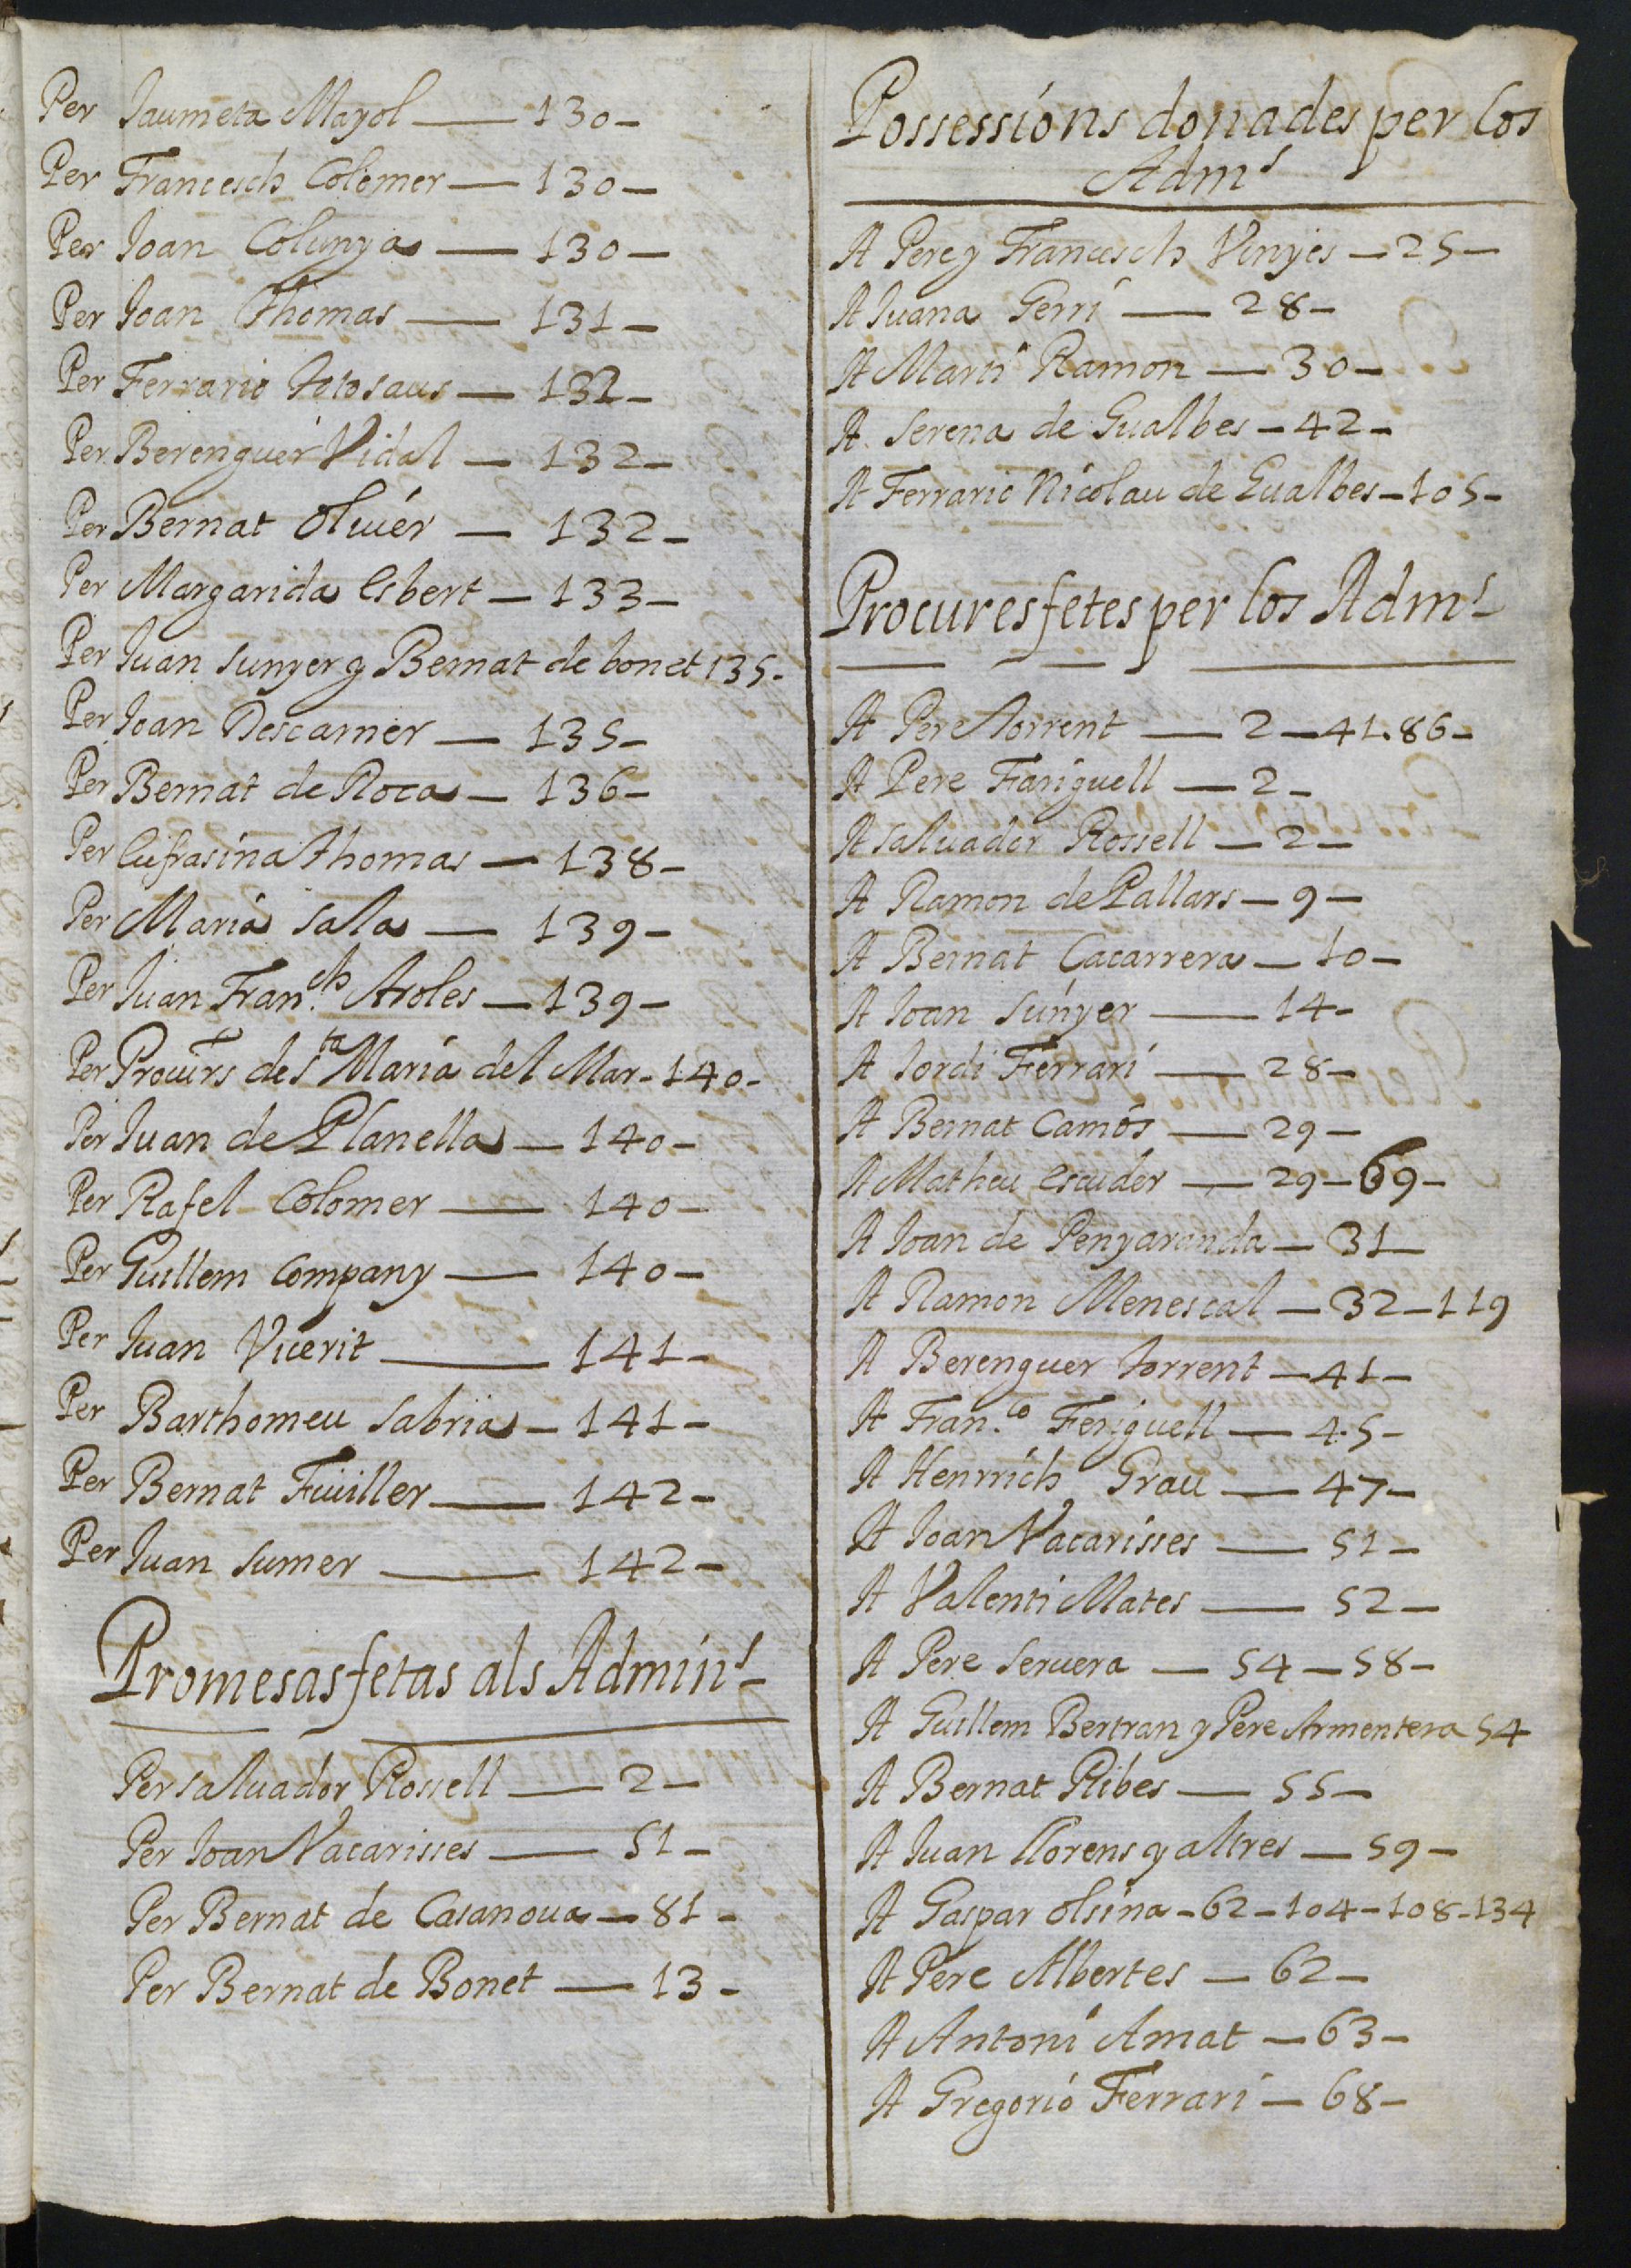 Per Jaumeta Mayol — 130 –
Per Francesch Colomer — 130 –
Per Joan Colunya — 130 –
Per Joan Thomas — 131 –
Per Ferrario — 132 –
Per Berenguer Vidal — 132 –
Per Bernat Oluér — 132 –
Per Margarida Esbert — 133 –
Per Juan Sunyer y Bernat de bonet 135 -
Per Joan Descarner — 135 –
Per Bernat de Roca — 136 –
Per Eufrasina Thomas — 138 –
Per Maria Sala — 139 –
Per Juan Fran.ch Aroles — 139 –
Per Procurs de Sta María del Mar - 140 -
Per Juan de Planella — 140 –
Per Rafel Colomer — 140 –
Per Guillem Company — 140 –
Per Juan Vicerit — 141 –
Per Barthomeu Sabria — 141 –
Per Bernat Fuuiller — 142 –
Per Juan Sumer — 142 –
Promesas fetas als Admins
Per Saluador Rossell — 2 –
Per Joan Vacarisses — 51 –
Per Bernat de Casanoua — 81 –
Per Bernat de Bonet — 13 -
Possessións donades per los
Adms
A Pere y Francesch Vinyes — 25 –
A Juana Ferri — 28 –
A Martí Ramon — 30 –
A Serena de Gualbes – 42 –
A Ferrario Nicolau de Gualbes – 105 –
Procures fetes per los Adms
A Pere Torrent — 2 — 41. 86 –
A Pere Fariguell — 2 –
A Saluador Rossell — 2 –
A Ramon de Pallars — 9 –
A Bernat Cacarrera — 10 –
A Joan Súnyer — 14 –
A Jordi Ferrari — 28 –
A Bernat Camós — 29 –
A Matheu Escuder — 29 – 69 –
A Joan de Penyaranda — 31 –
A Ramon Menescal — 32 – 119
A Berenguer Torrent — 41 –
A Fran.co Feriguell — 45 –
A Henrrich Grau — 47 –
A Joan Vacarisses — 51 –
A Valenti Mates — 52 –
A Pere Seruera — 54 — 58 –
A Guillem Bertran y Pere Armentera 54
A Bernat Ribes — 55 –
A Juan Llorens y altres — 59 –
A Gaspar Olsina – 62 – 104 – 108 - 134
A Pere Albertes — 62 –
A Antoni Amat — 63 –
A Gregorió Ferrari — 68 –